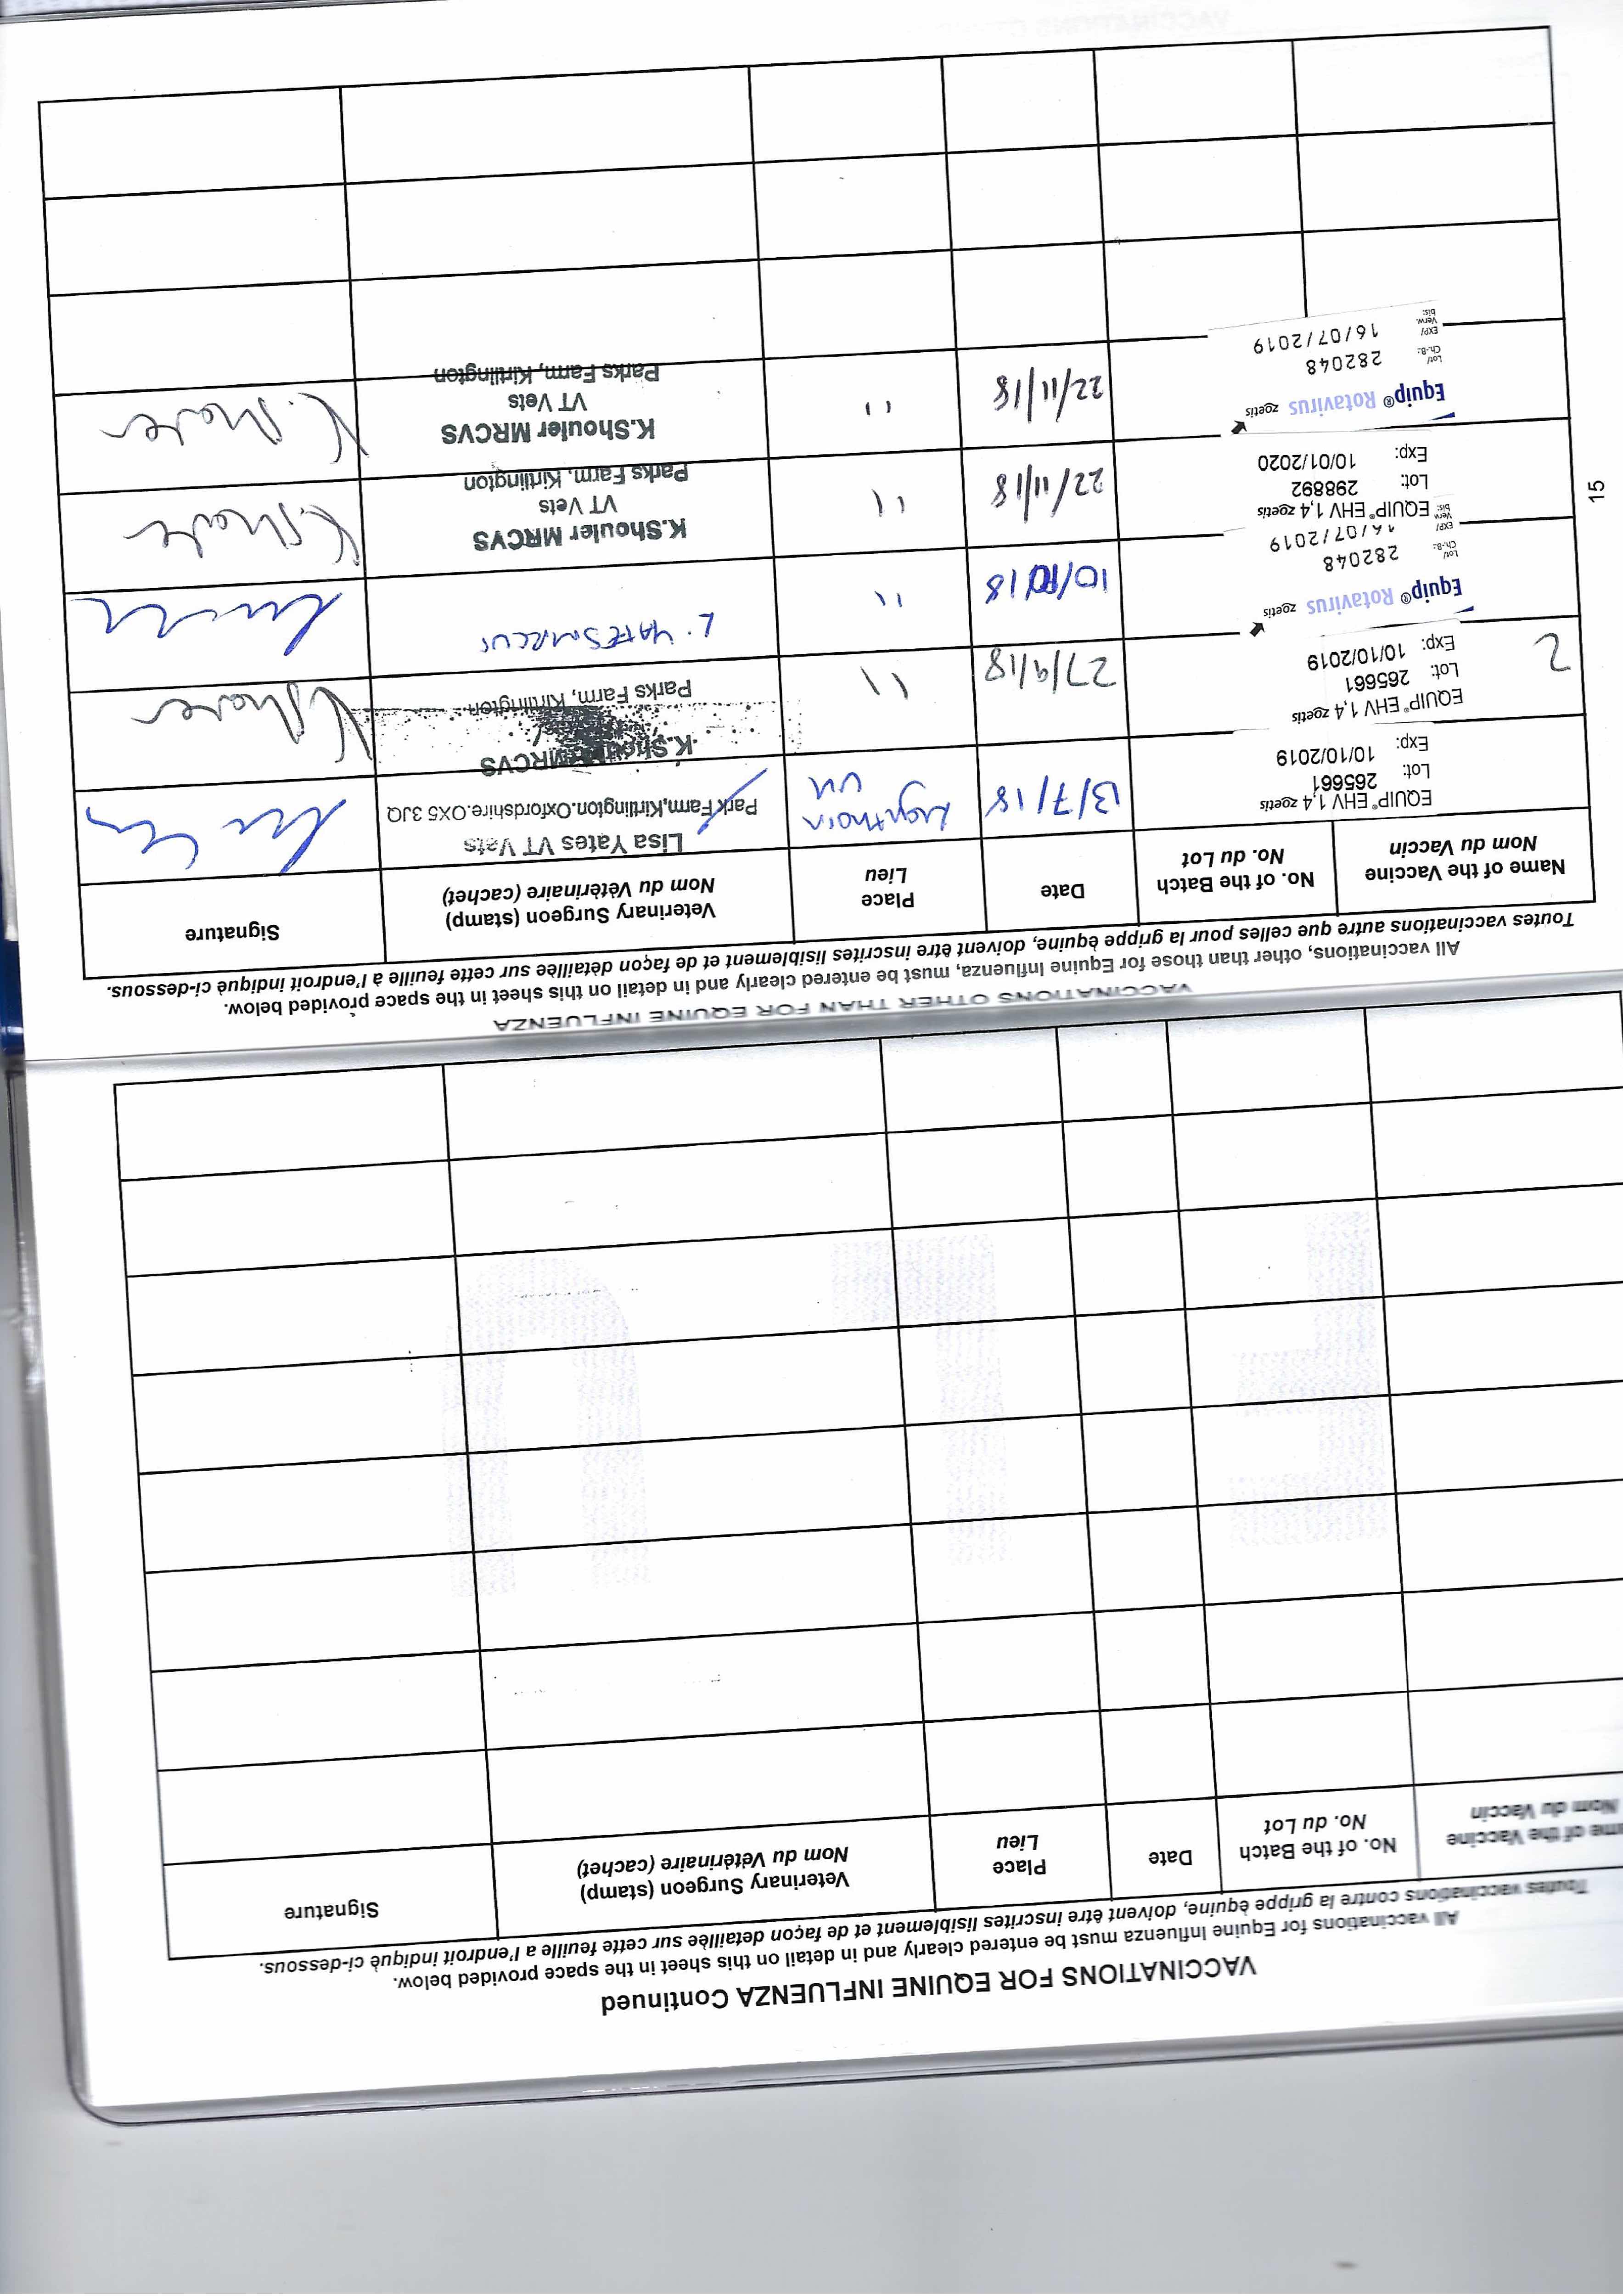 VACCINATIONS FOR EQUINE INFLUENZA Continued
All vaccinations for Equine Influenza must be entered clearly and in detail on this sheet in the space provided below.
Toutes vaccinations contre la grippe équine, doivent être inscrites lisiblement et de façon detaillèe sur cette feuille a l'endroit indiquè ci-dessous.
me of the Vaccine
Nom du Vaccin
No. of the Batch
No. du Lot
Date
Place
Lieu
Veterinary Surgeon (stamp)
Nom du Vètèrinaire (cachet)
Signature
VACCINATIONS OTHER THAN FOR EQUINE INFLUENZA
All vaccinations, other than those for Equine Influenza, must be entered clearly and in detail on this sheet in the space provided below.
Toutes vaccinations autre que celles pour la grippe èquine, doivent être inscrites lisiblement et de façon dètaillèe sur cette feuille à l'endroit indiquè ci-dessous.
Name of the Vaccine
Nom du Vaccin
No. of the Batch
No. du Lot
Date
Place
Lieu
Veterinary Surgeon (stamp)
Nom du Vètèrinaire (cachet)
Signature
EQUIP® EHV 1,4 zoetis
Lot: 265661
Exp: 10/10/2019
13/7/18
UK
Lisa Yates VT Vets
Park Farm,Kirtlington.Oxfordshire.OX5 3JQ
2
EQUIP® EHV 1,4 zoetis
Lot: 265661
Exp: 10/10/2019
27/9/18
11
K.Shouler MRCVS
Parks Farm, Kirtlington
K Shouler
Equip® Rotavirus zoetis
Lot/ Ch.-B.: 282048
EXP/ Verw. bis: 16/07/2019
10/10/18
11
L. YATES MRCVS
EQUIP® EHV 1,4 zoetis
Lot: 298892
Exp: 10/01/2020
22/11/18
11
K.Shouler MRCVS
VT Vets
Parks Farm, Kirtlington
K. Shouler
Equip® Rotavirus zoetis
Lot/ Ch.-B.: 282048
EXP/ Verw. bis: 16/07/2019
22/11/18
11
K.Shouler MRCVS
VT Vets
Parks Farm, Kirtlington
K. Shouler
15